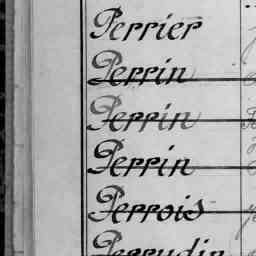 Perrier
Perrin
Perrin
Perrin
Perrois
Perrudin